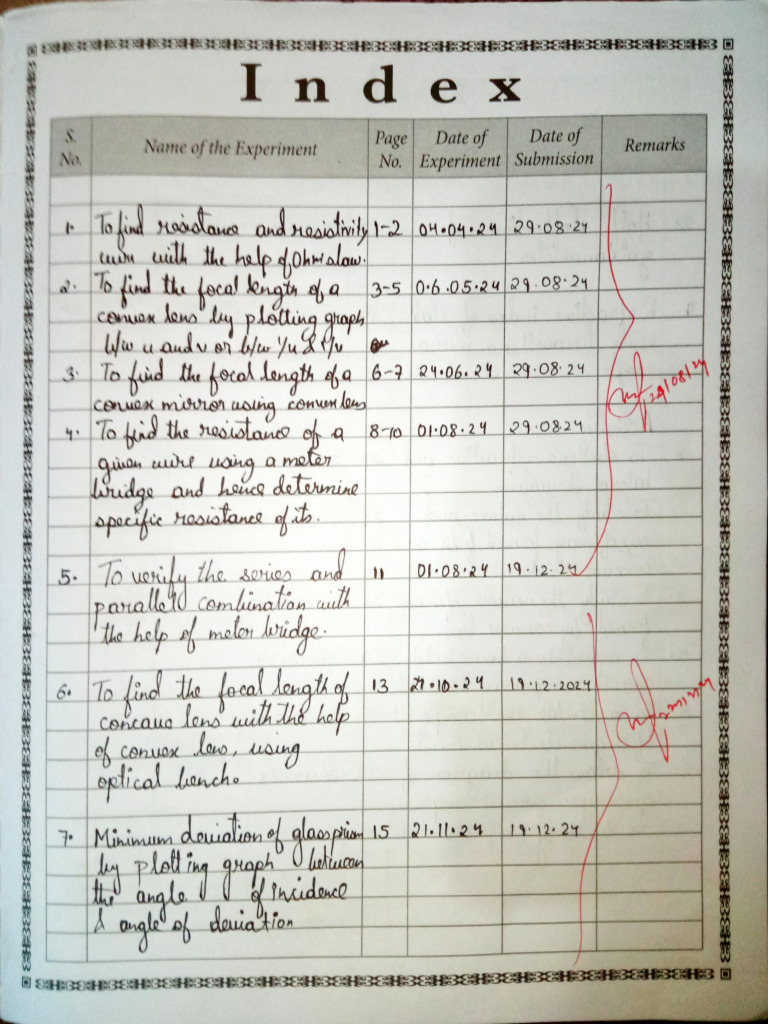 Index
S. No. Name of the Experiment Page No. Date of Experiment Date of Submission Remarks
1. To find resistance and resistivity 1-2 04.04.24 29.08.24
wire with the help of Ohm's law.
2. To find the focal length of a 3-5 0.6.05.24 29.08.24
convex lens by plotting graph
b/w u and v or b/w 1/u & 1/v
3. To find the focal length of a 6-7 24.06.24 29.08.24
convex mirror using convex lens
29/08/24
4. To find the resistance of a 8-10 01.08.24 29.08.24
given wire using a meter
bridge and hence determine
specific resistance of its.
5. To verify the series and 11 01.08.24 19.12.24
parallel combination with
the help of meter bridge.
6. To find the focal length of 13 21.10.24 19.12.2024
concave lens with the help
of convex lens, using
optical bench.
7. Minimum deviation of glass prism 15 21.11.24 19.12.24
by plotting graph between
the angle of incidence
& angle of deviation